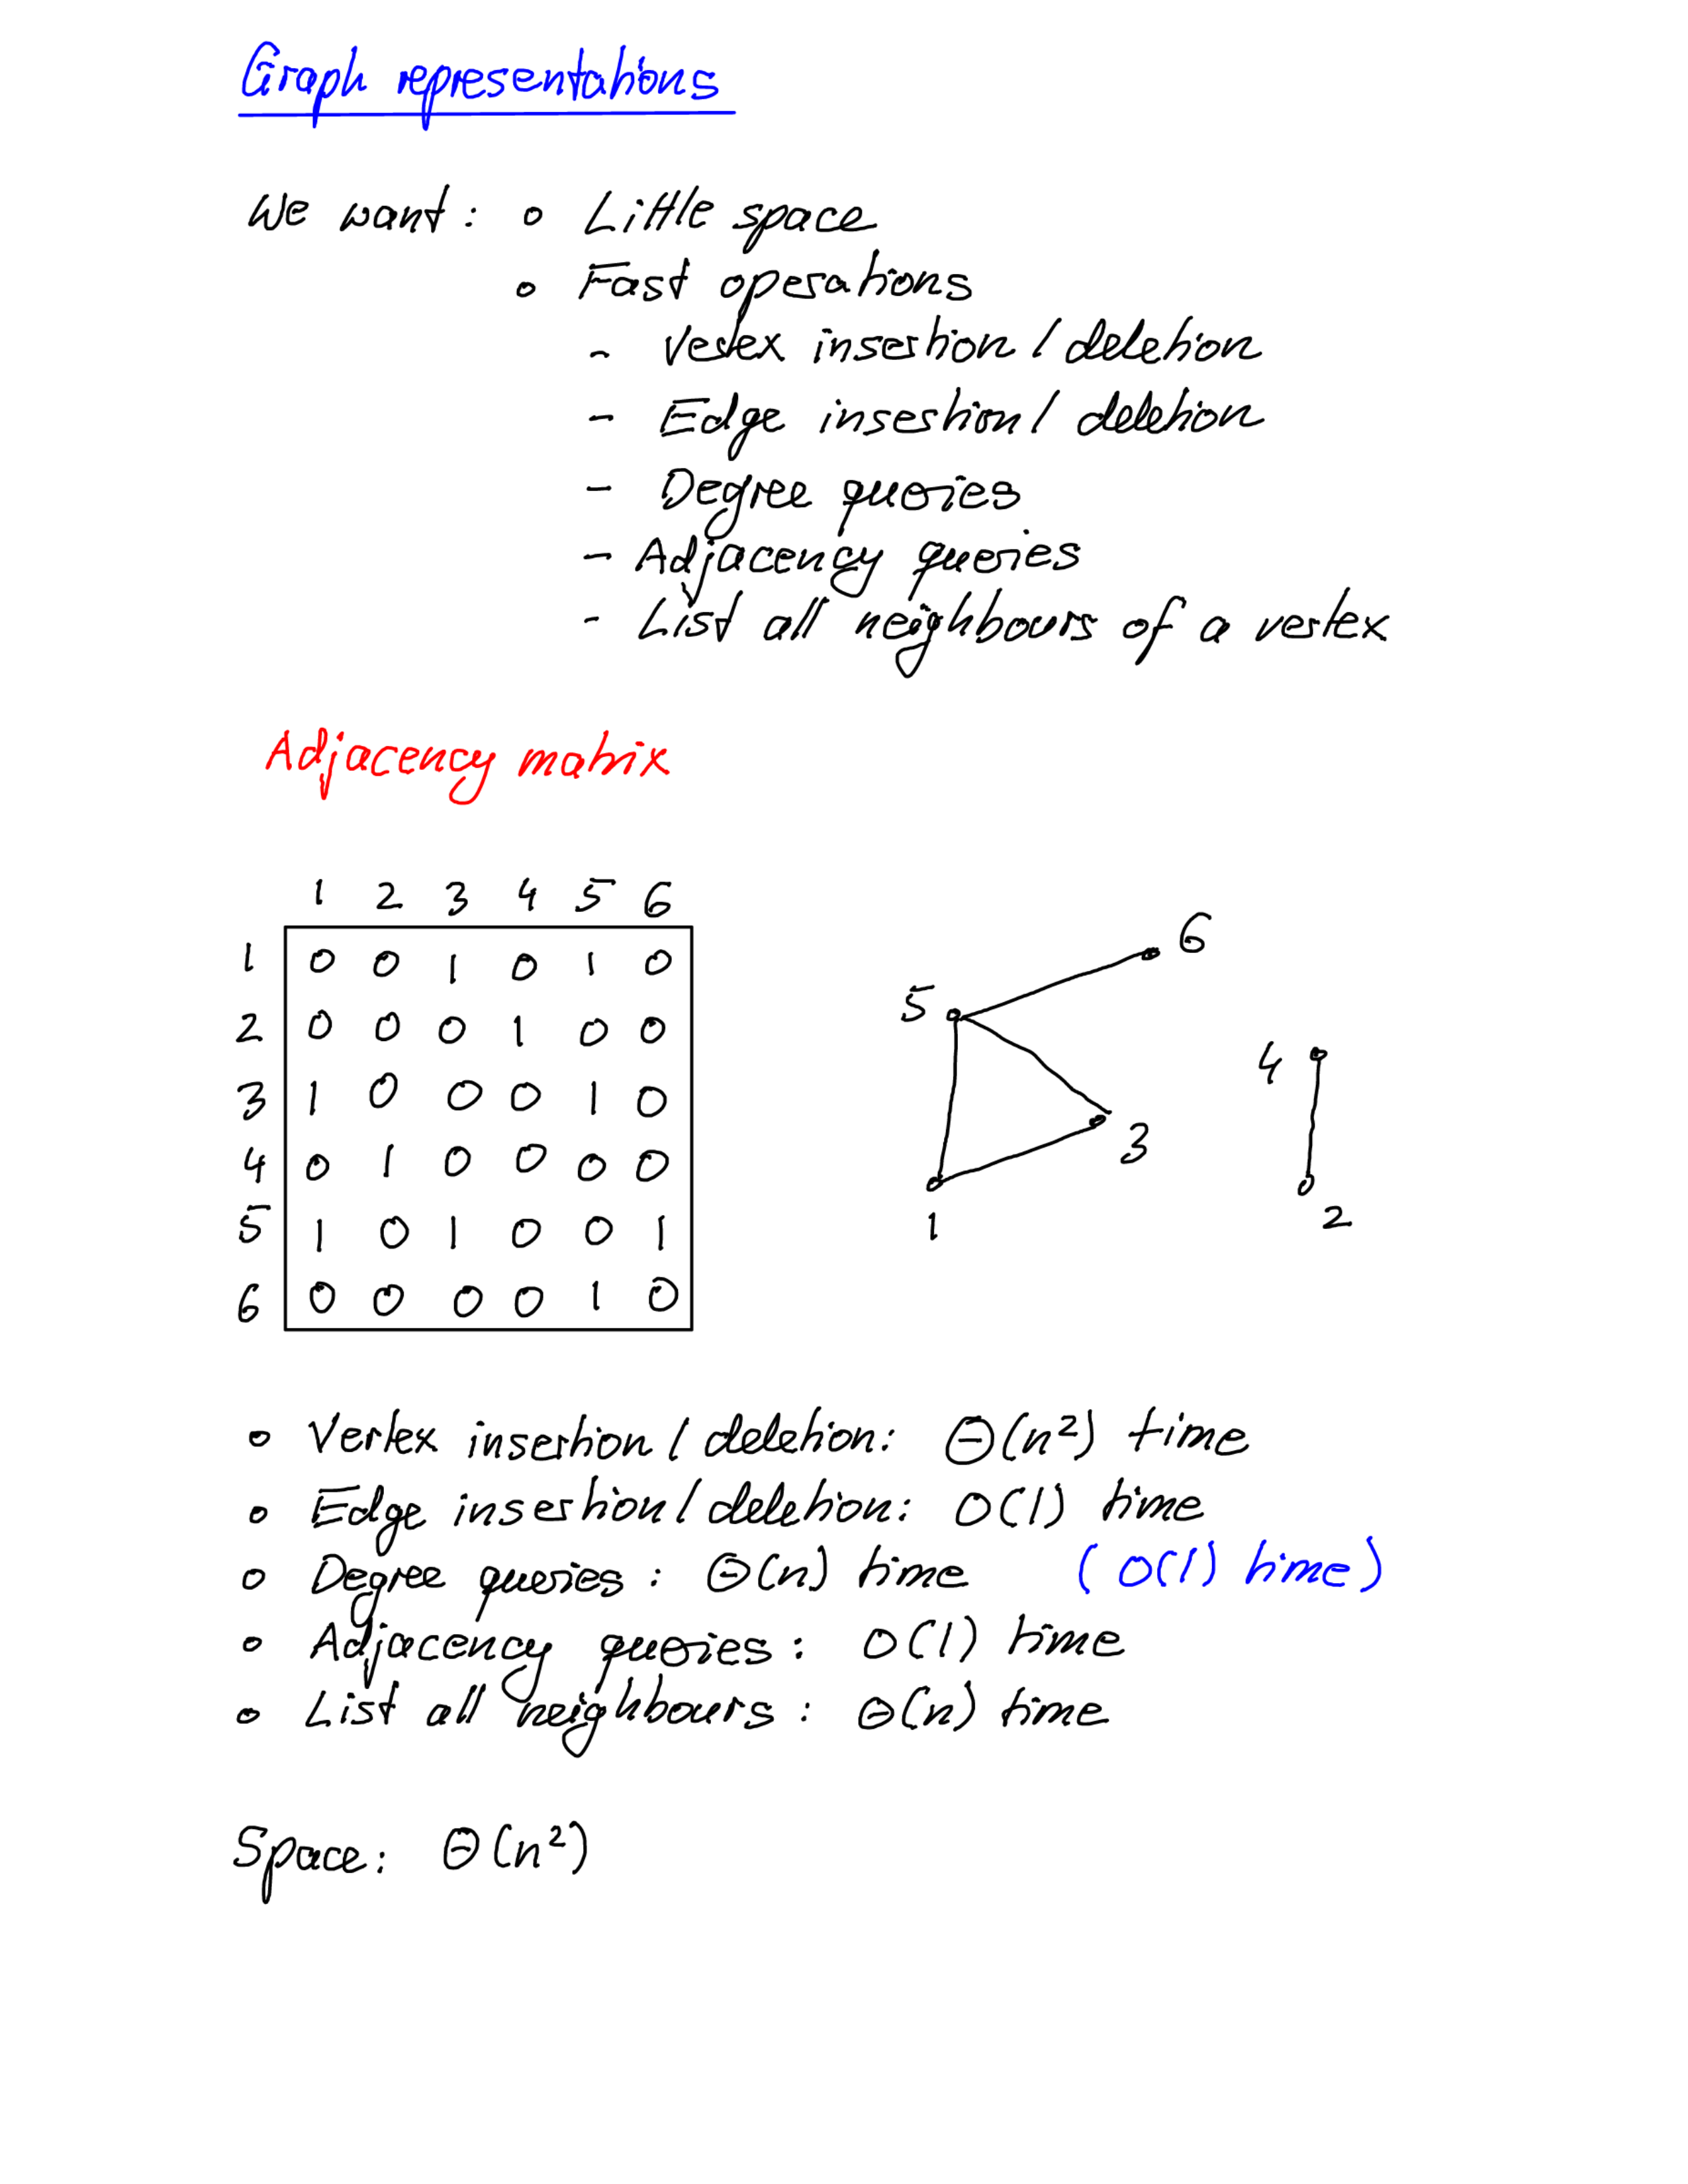 Graph representations
We want: o Little space
o Fast operations
- Vertex insertion / deletion
- Edge insertion / deletion
- Degree queries
- Adjacency queries
- List all neighbours of a vertex
Adjacency matrix
1 2 3 4 5 6
1 0 0 1 0 1 0
2 0 0 0 1 0 0
3 1 0 0 0 1 0
4 0 1 0 0 0 0
5 1 0 1 0 0 1
6 0 0 0 0 1 0
6
5
4
3
1
2
o Vertex insertion / deletion: Θ(n²) time
o Edge insertion / deletion: O(1) time
o Degree queries: Θ(n) time (O(1) time)
o Adjacency queries: O(1) time
o List all neighbours: Θ(n) time
Space: Θ(n²)